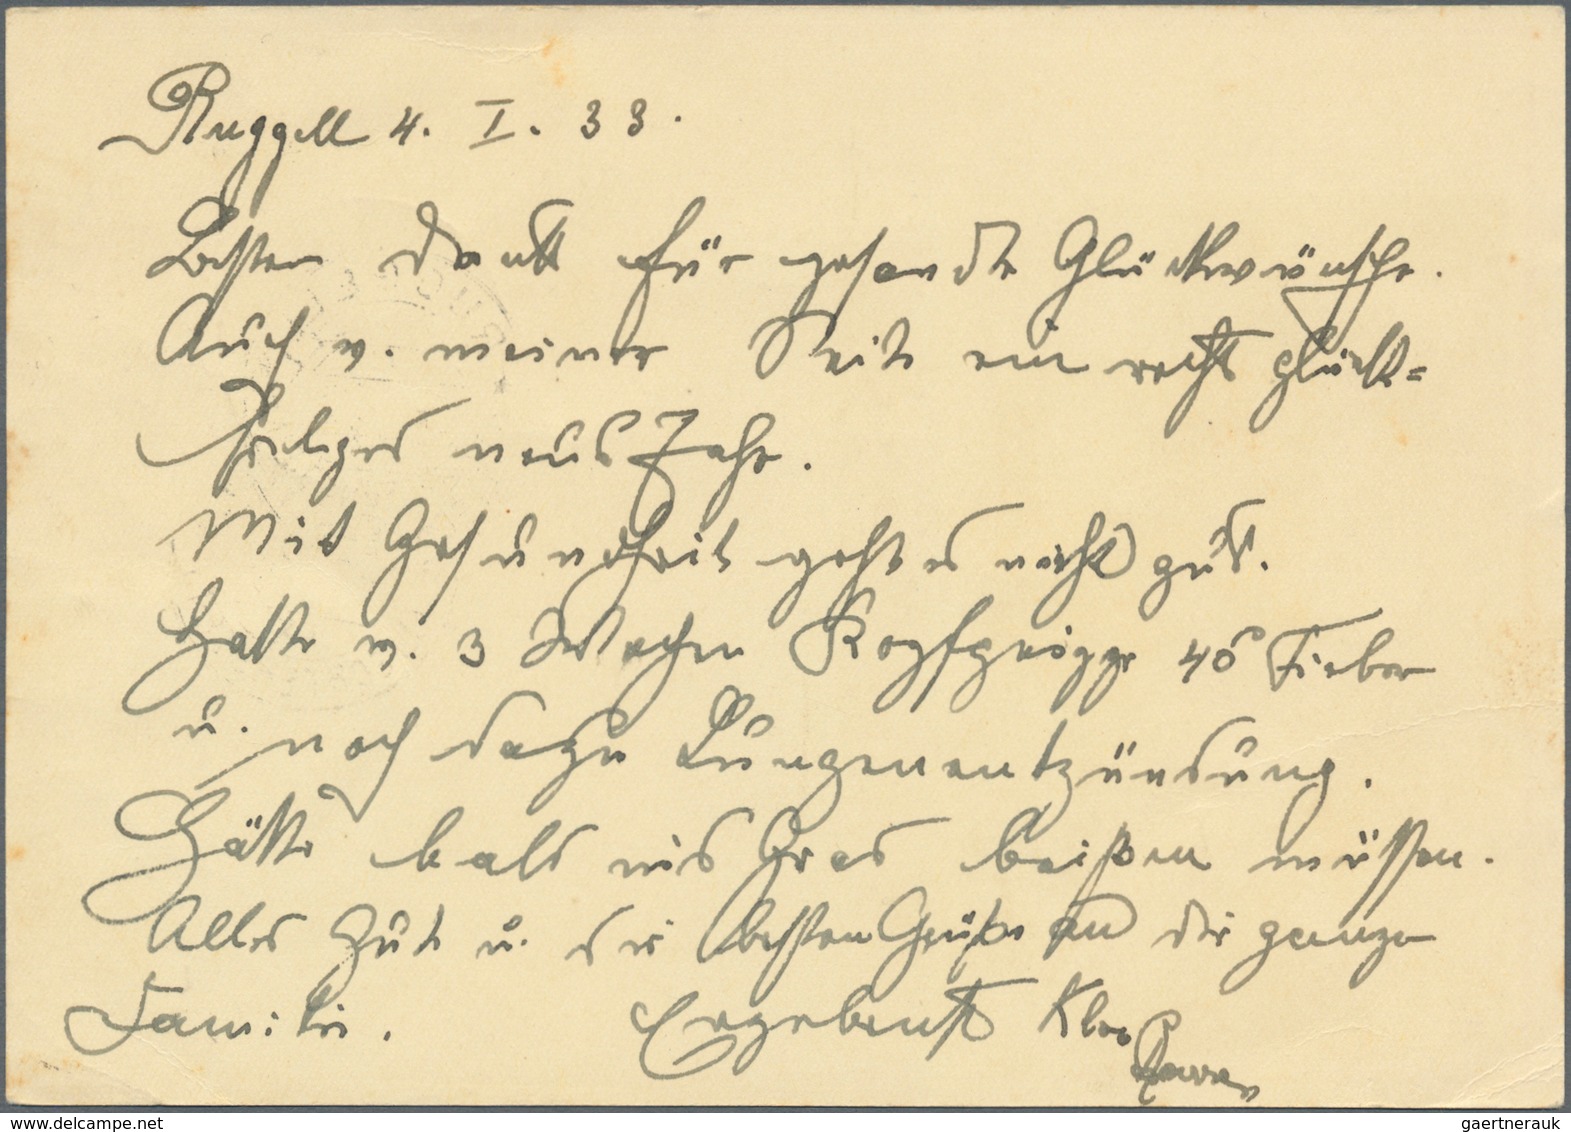 Ruggell 4. I. 33.
Besten Dank für gesandte Glückwünsche.
Auch v. meiner Seite ein recht glück=
seliges neues Jahr.
Mit Gesundheit geht es nicht gut.
Hatte v. 3 Wochen Kopfgrippe 40° Fieber
u. noch dazu Lungenentzündung.
Hätte bald ins Gras beißen müssen.
Alles Gute u. die besten Grüße an die ganze
Familie. Ergebenst
delcampe.net
gaertnerauk